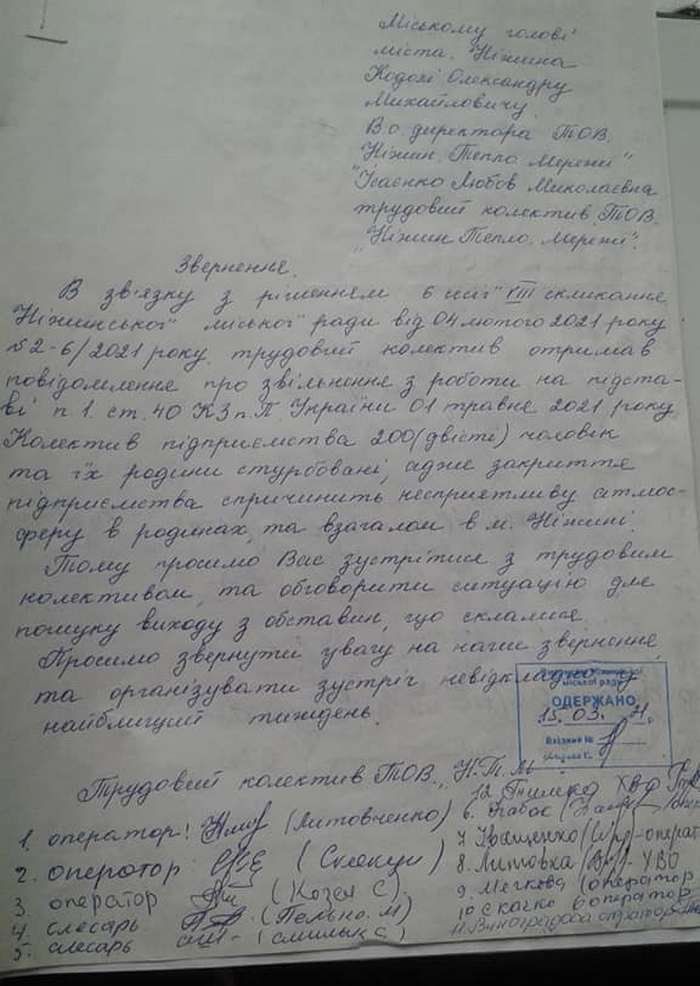 Міському голові
міста. Ніжина
Кодолі Олександру
Михайловичу.
В.о. директора ТОВ.
"Ніжин. Тепло. Мережі"
"Ісаєнко Любов Миколаєвна
трудовий колектив ТОВ.
"Ніжин Тепло. Мережі".
Звернення.
В зв'язку з рішенням 6 сесії VIII скликання
Ніжинської міської ради від 04 лютого 2021 року
№ 2-6/2021 року трудовий колектив отримав
повідомлення про звільнення з роботи на підста-
ві п 1. ст. 40 КЗпП. України 01 травня 2021 року.
Колектив підприємства 200 (двісті) чоловік
та їх родини стурбовані, адже закриття
підприємства спричинить несприятливу атмос-
феру в родинах, та взагалом в м. Ніжині.
Тому просимо Вас зустрітися з трудовим
колективом, та обговорити ситуацію для
пошуку виходу з обставин, що склалися.
Просимо звернути увагу на наше звернення
та організувати зустріч невідкладно у
найближчий тиждень.
міської ради
ОДЕРЖАНО
15. 03.
Вхідний №
Трудовий колектив ТОВ. "Н.Т.М"
1. оператор! (Литовченко)
2. оператор
3. оператор (Козел С).
4. слесарь
5. слесарь
12. ХВО
6.
7. Іващенко оператор
8. Литовка ХВО
9. Мечкова (оператор
10 Скачко оператор
11. Виноградова оператор